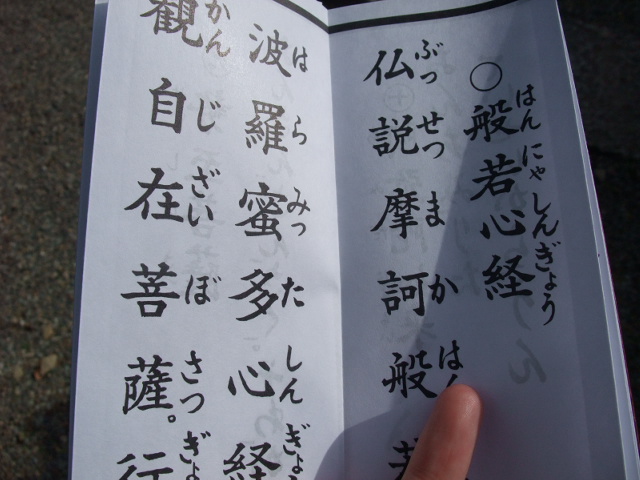 ○般若心経
はんにゃしんぎょう
仏説摩訶般若
ぶっせつまかはん
波羅蜜多心経
はらみったしんぎょう
観自在菩薩。行
かんじざいぼさつぎょ